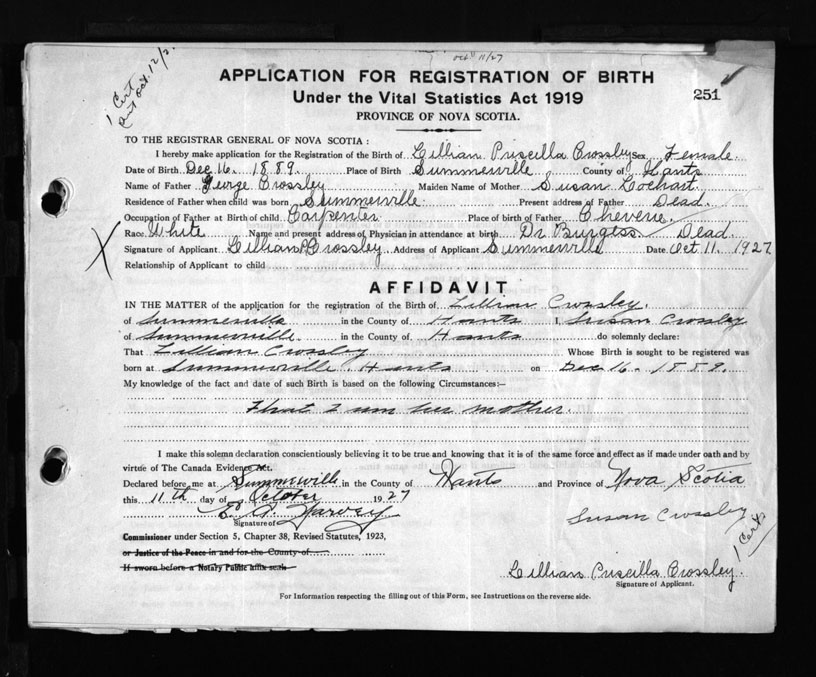 Oct 11/27
1 Cert
Oct. 12/2
APPLICATION FOR REGISTRATION OF BIRTH
Under the Vital Statistics Act 1919
251
PROVINCE OF NOVA SCOTIA.
TO THE REGISTRAR GENERAL OF NOVA SCOTIA:
I hereby make application for the Registration of the Birth of Lillian Priscilla Crossley Sex Female.
Date of Birth Dec 16. 1889. Place of Birth Summerville County of Hants
Name of Father George Crossley Maiden Name of Mother Susan Lochart.
Residence of Father when child was born Summerville. Present address of Father Dead.
Occupation of Father at Birth of child Carpenter Place of birth of Father Cheverie.
Race White Name and present address of Physician in attendance at birth Dr Burgess. Dead.
Signature of Applicant Lillian P Crossley Address of Applicant Summerville Date Oct 11. 1927
Relationship of Applicant to child
X
AFFIDAVIT
IN THE MATTER of the application for the registration of the Birth of Lillian Crossley.
of Summerville in the County of Hants I, Susan Crossley
of Summerville. in the County of Hants do solemnly declare:
That Lillian Crossley Whose Birth is sought to be registered was
born at Summerville. Hants on Dec 16. 1889.
My knowledge of the fact and date of such Birth is based on the following Circumstances:—
that I am her mother.
I make this solemn declaration conscientiously believing it to be true and knowing that it is of the same force and effect as if made under oath and by
virtue of The Canada Evidence Act.
Declared before me at Summerville in the County of Hants and Province of Nova Scotia
this 11th day of October 1927
E. A. Harvey
Susan Crossley
Signature of
Commissioner under Section 5, Chapter 38, Revised Statutes, 1923,
or Justice of the Peace in and for the County of
If sworn before a Notary Public affix seal
1 Cert.
Lillian Priscilla Crossley.
Signature of Applicant.
For Information respecting the filling out of this Form, see Instructions on the reverse side.